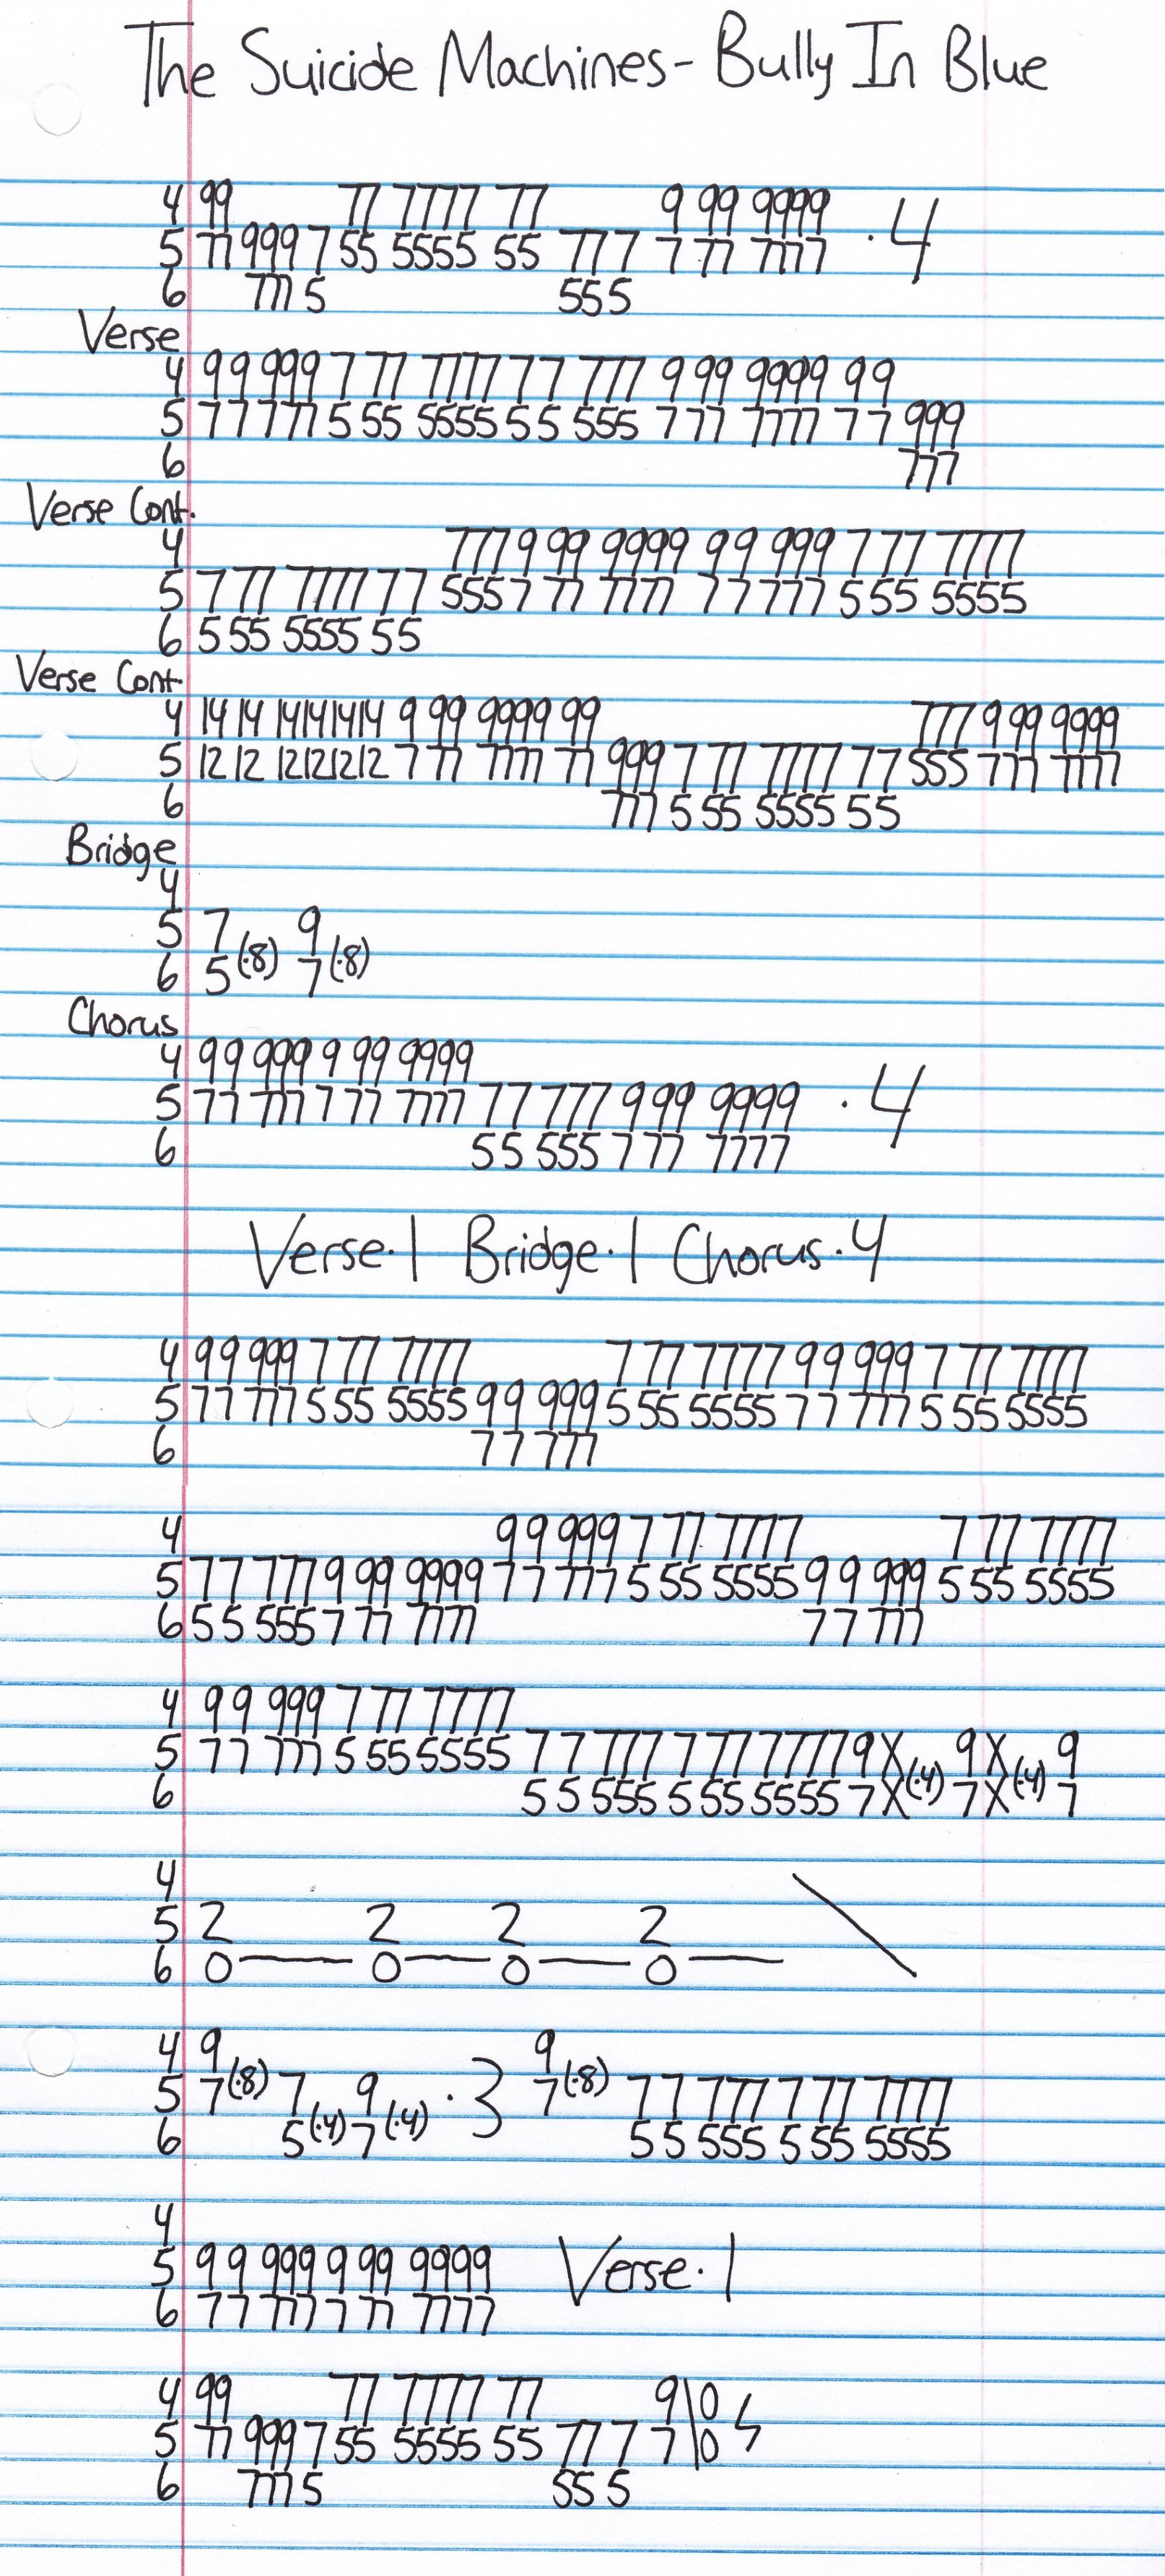 The Suicide Machines - Bully In Blue
4 99 77 7777 77 9 99 9999
5 77 999 7 55 5555 55 777 7 7 77 7777 .4
6 777 5 555 5
Verse
4 99 999 7 77 7777 77 777 9 99 9999 99
5 77 777 5 55 5555 55 555 7 77 7777 77 999
6 777
Verse Cont.
4 777 9 99 9999 99 999 7 77 7777
5 7 77 7777 77 555 7 77 7777 77 777 5 55 5555
6 5 55 5555 55
Verse Cont.
4 14 14 14141414 9 99 9999 99 777 9 99 9999
5 12 12 12121212 7 77 7777 77 999 7 77 7777 77 555 7 77 7777
6 777 5 55 5555 55
Bridge
4
5 7 9
6 5 (.8) 7 (.8)
Chorus
4 99 999 9 99 9999
5 77 777 7 77 7777 77 777 9 99 9999 .4
6 55 555 7 77 7777
Verse.1 Bridge.1 Chorus.4
4 99 999 7 77 7777 7 77 7777 99 999 7 77 7777
5 77 777 5 55 5555 99 999 5 55 5555 77 777 5 55 5555
6 77 777
4 99 999 7 77 7777 7 77 7777
5 77 777 9 99 9999 77 777 5 55 5555 99 999 5 55 5555
6 55 555 7 77 7777 77 777
4 99 999 7 77 7777
5 77 777 5 55 5555 77 777 7 77 7777 9X 9X 9
6 55 555 5 55 5555 7X(.4) 7X(.4) 7
4
5 2 2 2 2
6 0 — 0 — 0 — 0 — \
4 9 9
5 7(.8) 7 9 .3 7(.8) 77 777 7 77 7777
6 5(.4) 7(.4) 55 555 5 55 5555
4
5 99 999 9 99 9999 Verse.1
6 77 777 7 77 7777
4 99 77 7777 77 9\0
5 77 999 7 55 5555 55 77 7 7 7\0
6 777 5 55 5